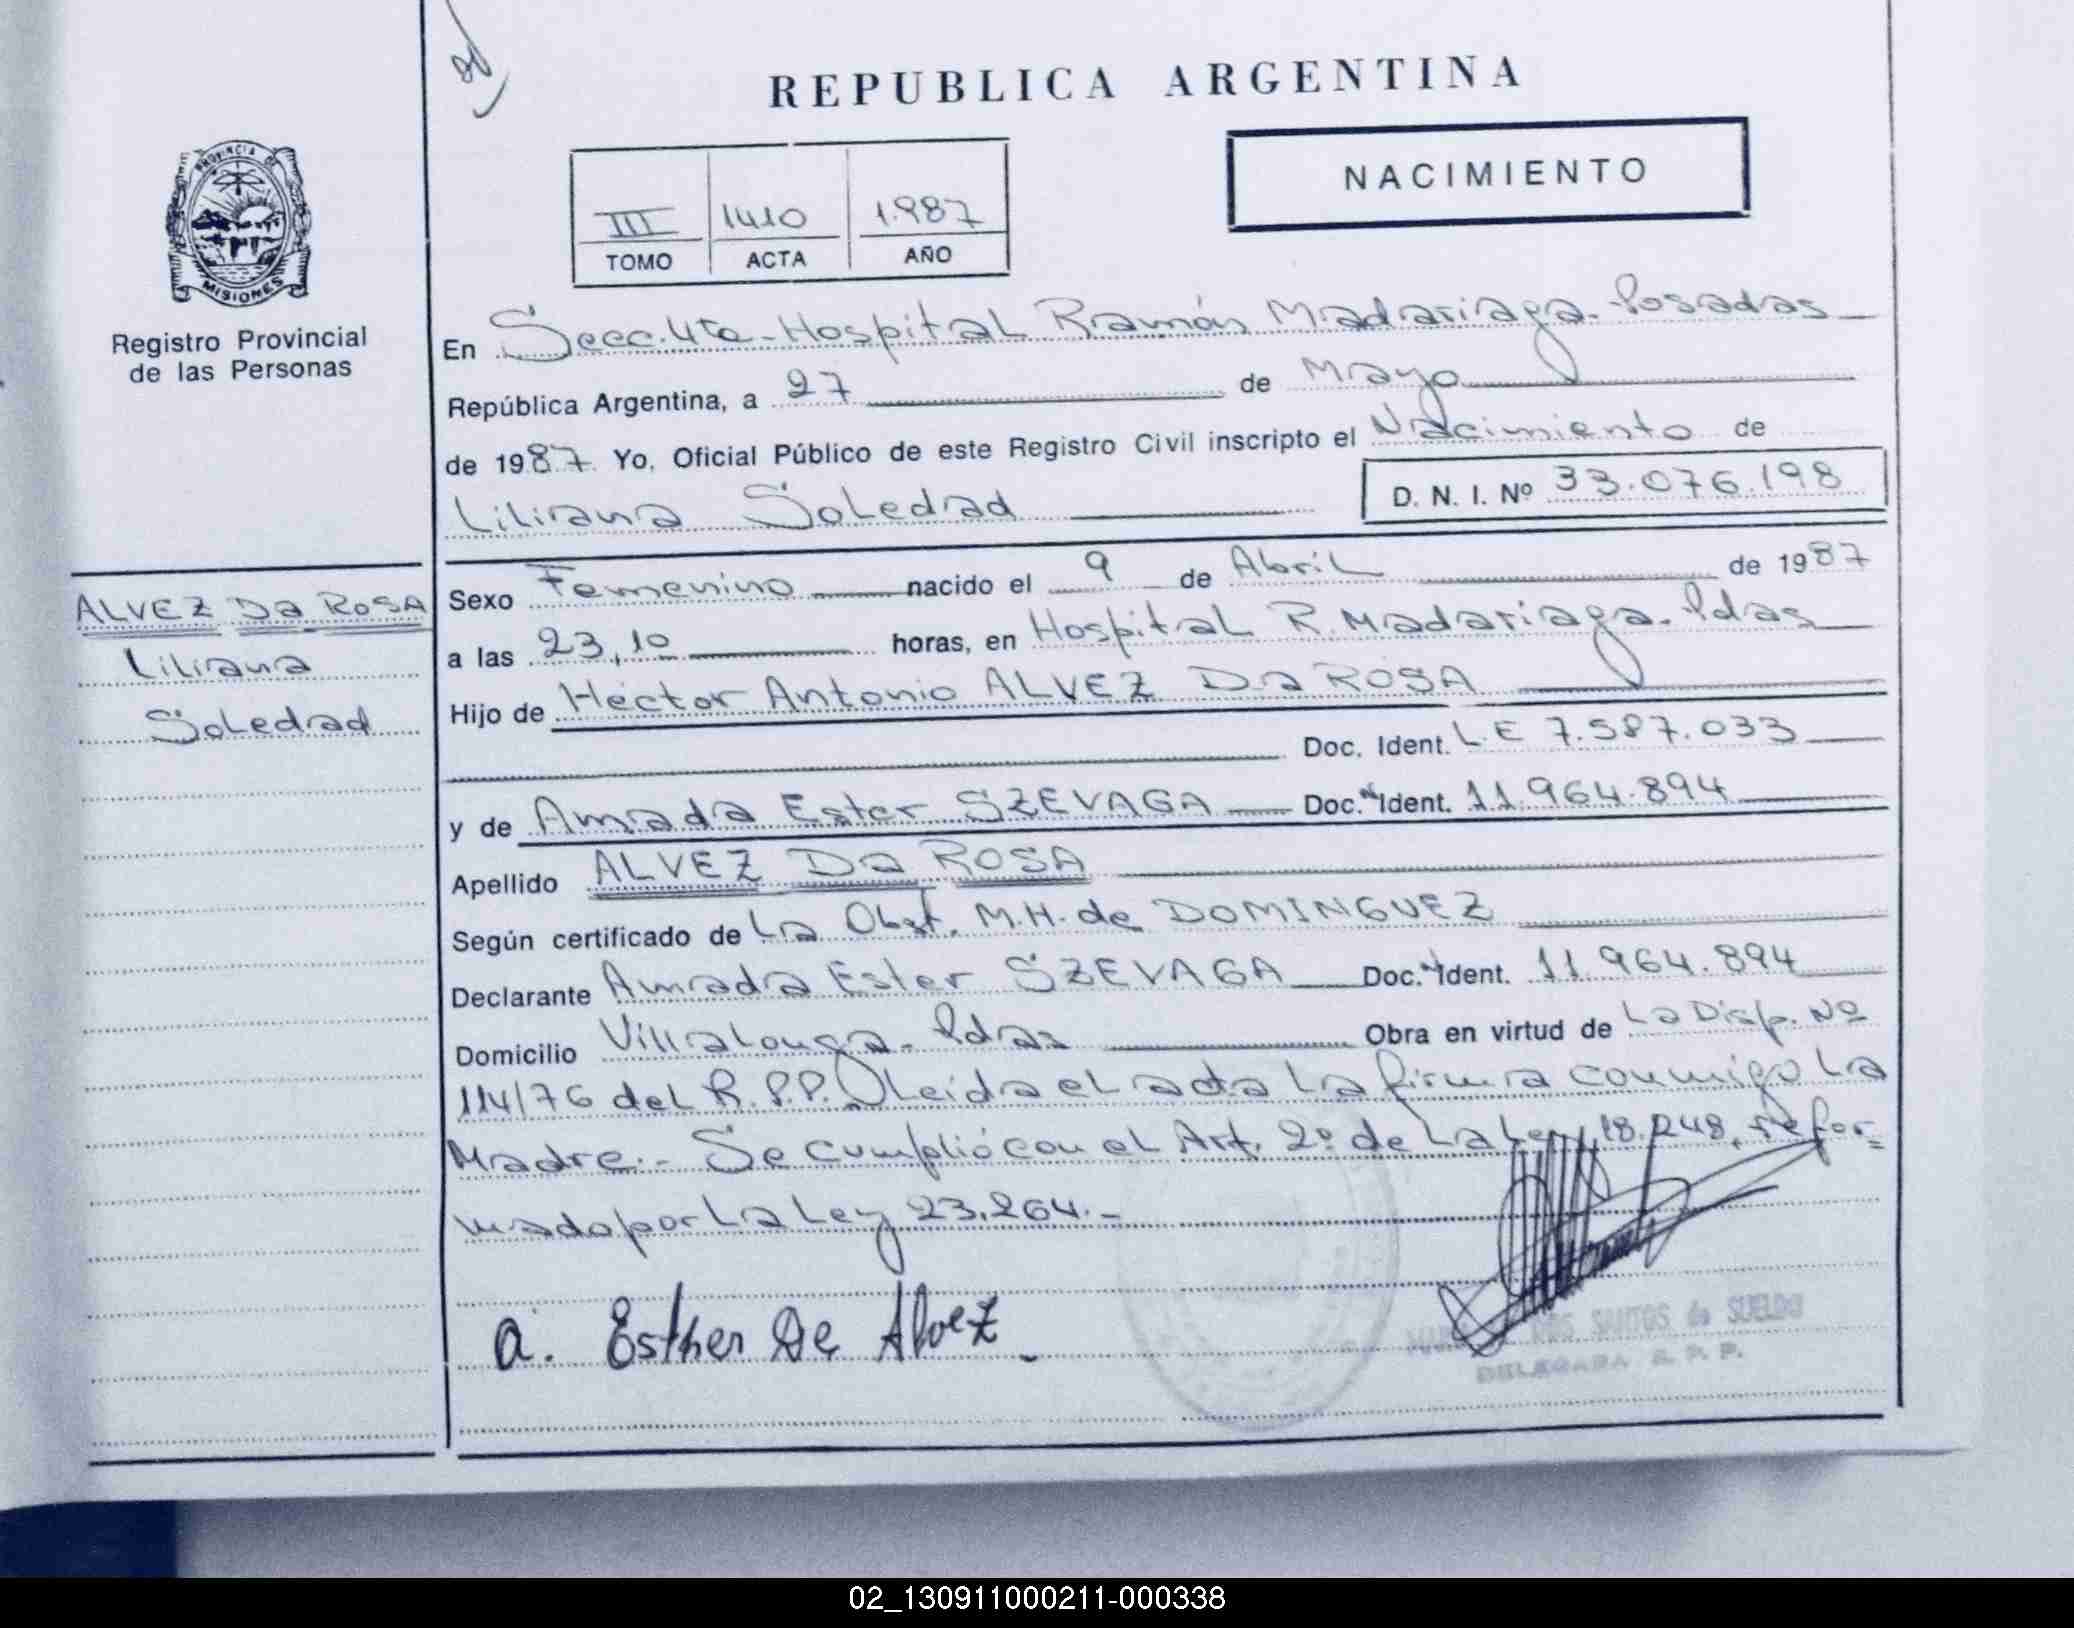 REPUBLICA ARGENTINA
NACIMIENTO
III 1410 1.987
TOMO ACTA AÑO
PROVINCIA DE
MISIONES
Registro Provincial
de las Personas
ALVEZ Da ROSA
Liliana
Soledad
En Secc. 4ta - Hospital Ramón Madariaga - Posadas
República Argentina, a 27 de Mayo
de 1987. Yo, Oficial Público de este Registro Civil inscripto el Nacimiento de
Liliana Soledad D. N. I. Nº 33.076.198
Sexo Femenino nacido el 9 de Abril de 1987
a las 23,10 horas, en Hospital R. Madariaga - Pdas
Hijo de Héctor Antonio ALVEZ Da ROSA
Doc. Ident. L.E 7.587.033
y de Amada Ester SZEVAGA Doc. Ident. 11.964.894
Apellido ALVEZ Da ROSA
Según certificado de La Obst. M.H. de DOMINGUEZ
Declarante Amada Ester SZEVAGA Doc. Ident. 11.964.894
Domicilio Villalonga - Pdas Obra en virtud de La Disp. Nº
114/76 del R.P.P. Leida el acta La firma conmigo La
Madre.- Se cumplió con el Art. 2º de La Ley 18.248, refor=
mado por La Ley 23.264.-
a. Esther De Alvez
DOS SANTOS de SUELDO
DELEGADA R. P. P.
02_130911000211-000338